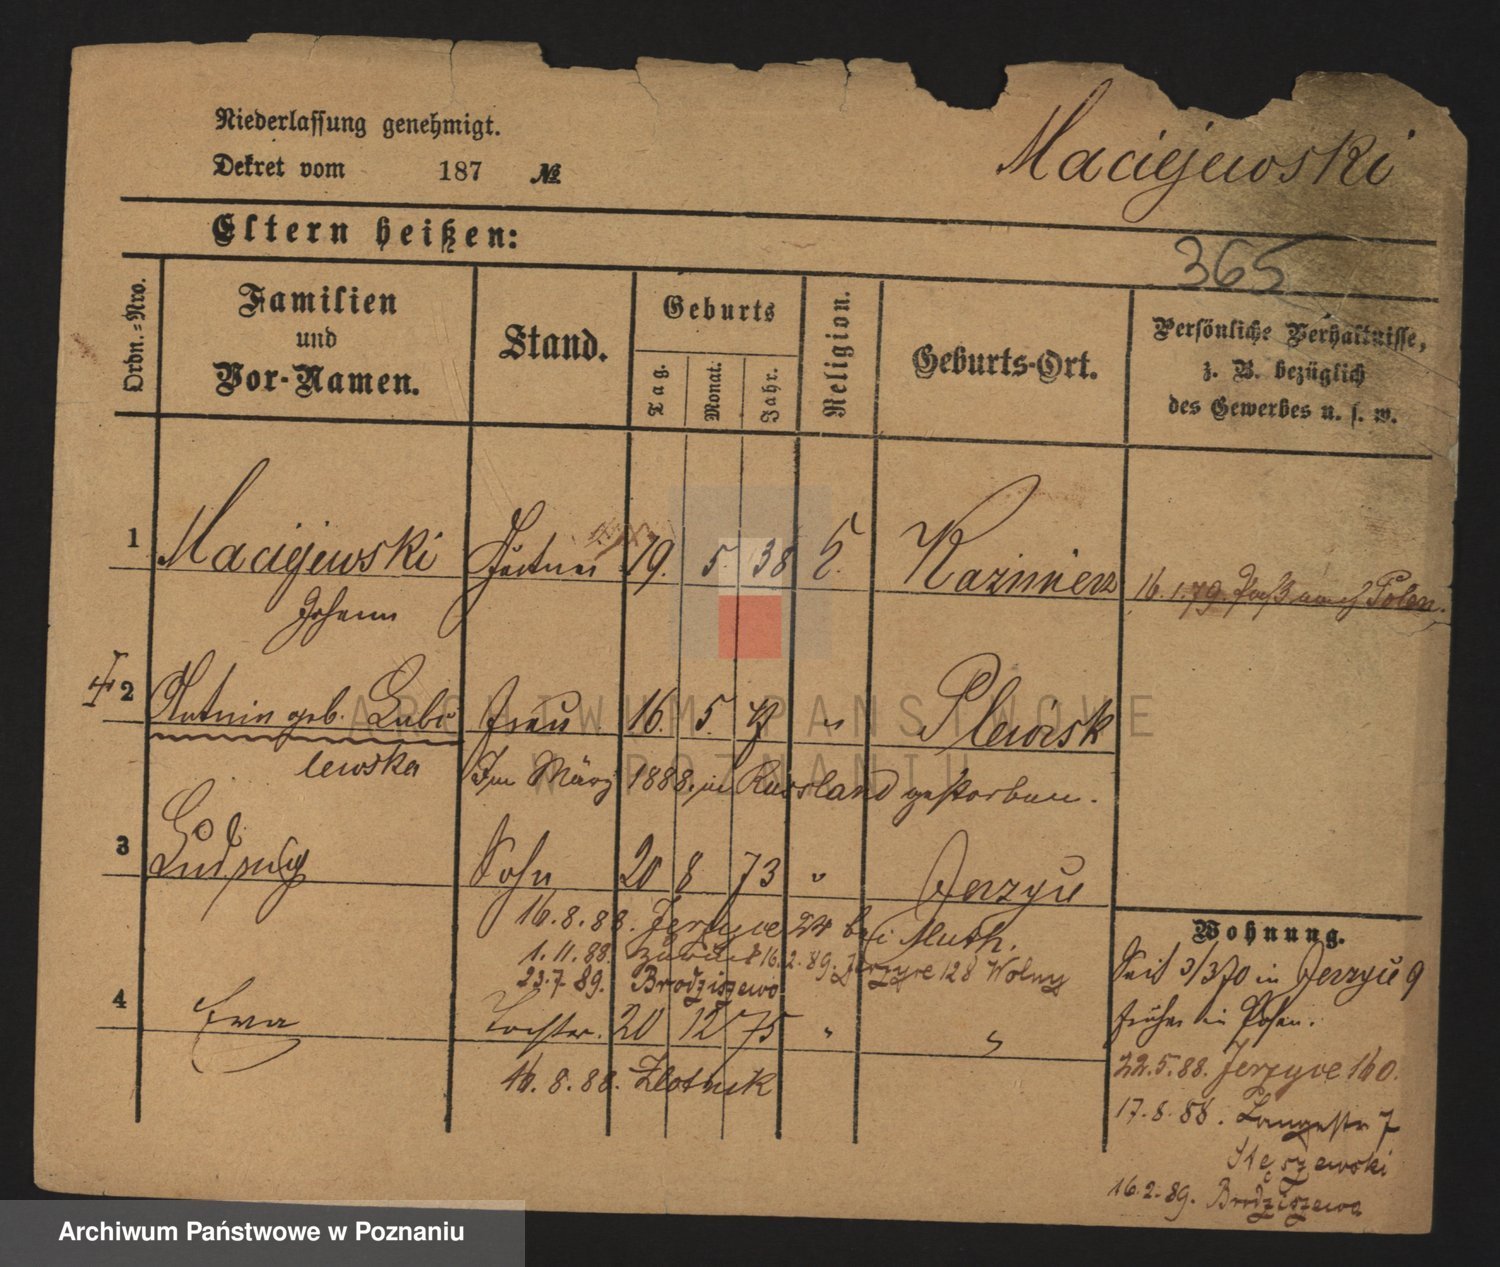 Niederlassung genehmigt.
Dekret vom 187 №
Maciejewski
Eltern heißen:
365
Ordn.-Nro.
Familien
und
Vor-Namen.
Stand.
Geburts
Tag.
Monat.
Jahr.
Religion.
Geburts-Ort.
Persönliche Verhältnisse,
z. B. bezüglich
des Gewerbes u. s. w.
1 Maciejewski 19. 5. 38 Kazimierz
16. 1. 79. Paß nach Polen.
Johann
2 geb. Lubi Frau 16. 5. " Plewisk
lewska Im März 1888. in Russland gestorben.
3 Ludwig Sohn 20 8 73 " Jerzyce
16.8.88. Jerzyce 24 bei Muth.
1.11.88. zurück 16.2.89. Jerzyce 128 Wolny
23.7 89. Brodziszewo
4 Eva Tochter. 20 12 75 " "
16.8.88. Zlotnik
Wohnung.
Seit 3/3 70 in Jerzyce 9
früher in Posen.
22.5.88. Jerzyce 160.
17.8.88. Langestr 7
Stęszewski
16.2.89. Brodziszewo
ARCHIWUM PAŃSTWOWE
W POZNANIU
Archiwum Państwowe w Poznaniu